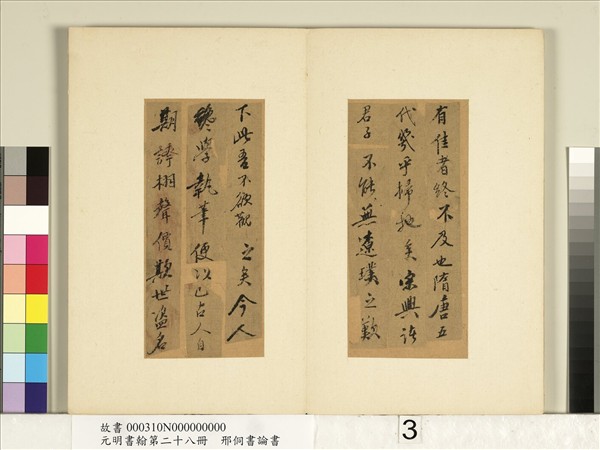 有佳者終不及也隋唐五
代幾乎掃地矣宋興諸
君子不能無遼璞之歎
下此吾不欲觀之矣今人
纔學執筆便以己占人自
期誇相聲價欺世盜名
故書 000310N000000000
元明書翰第二十八冊 邢侗書論書
3